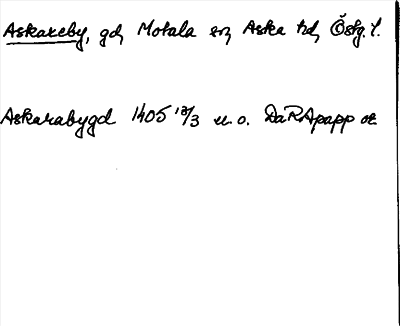 Askareby, gd, Motala sn, Aska hd, Östg. l.
Askarabygd 1405 13/3 u. o. DaRApapp or.